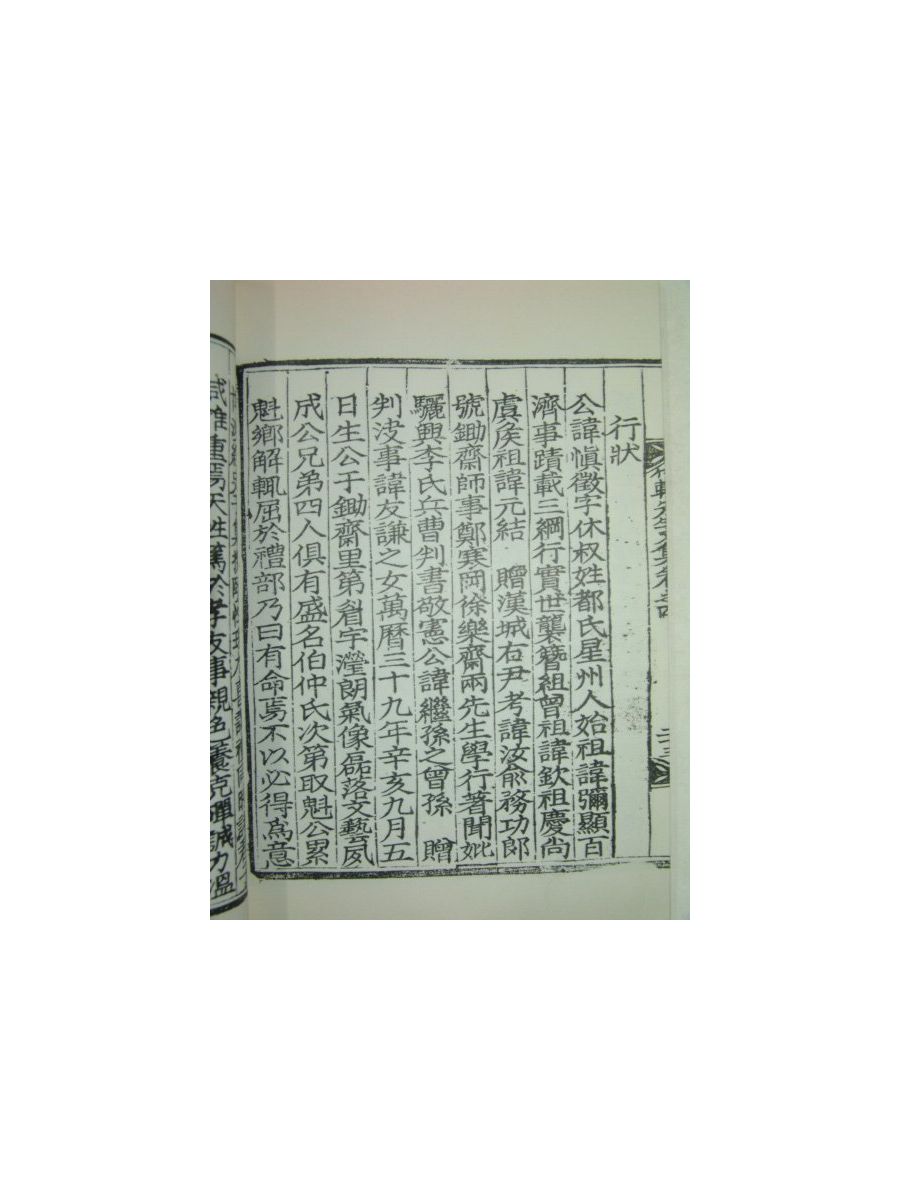 行狀
公諱愼徵字休叔姓都氏星州人始祖諱彌顯百
濟事蹟載三綱行實世襲簪組曾祖諱欽祖慶尙
虞侯祖諱元結 贈漢城右尹考諱汝兪務功郞
號鋤齋師事鄭寒岡徐樂齋兩先生學行著聞妣
驪興李氏兵曹判書敬憲公諱繼孫之曾孫 贈
判決事諱友謙之女萬曆三十九年辛亥九月五
日生公于鋤齋里第眉宇瀅朗氣像磊落文藝夙
成公兄弟四人俱有盛名伯仲氏次第取魁公累
魁鄕解輒屈於禮部乃曰有命焉不以必得爲意
重焉天性篤於孝友事親色養克殫誠力溫